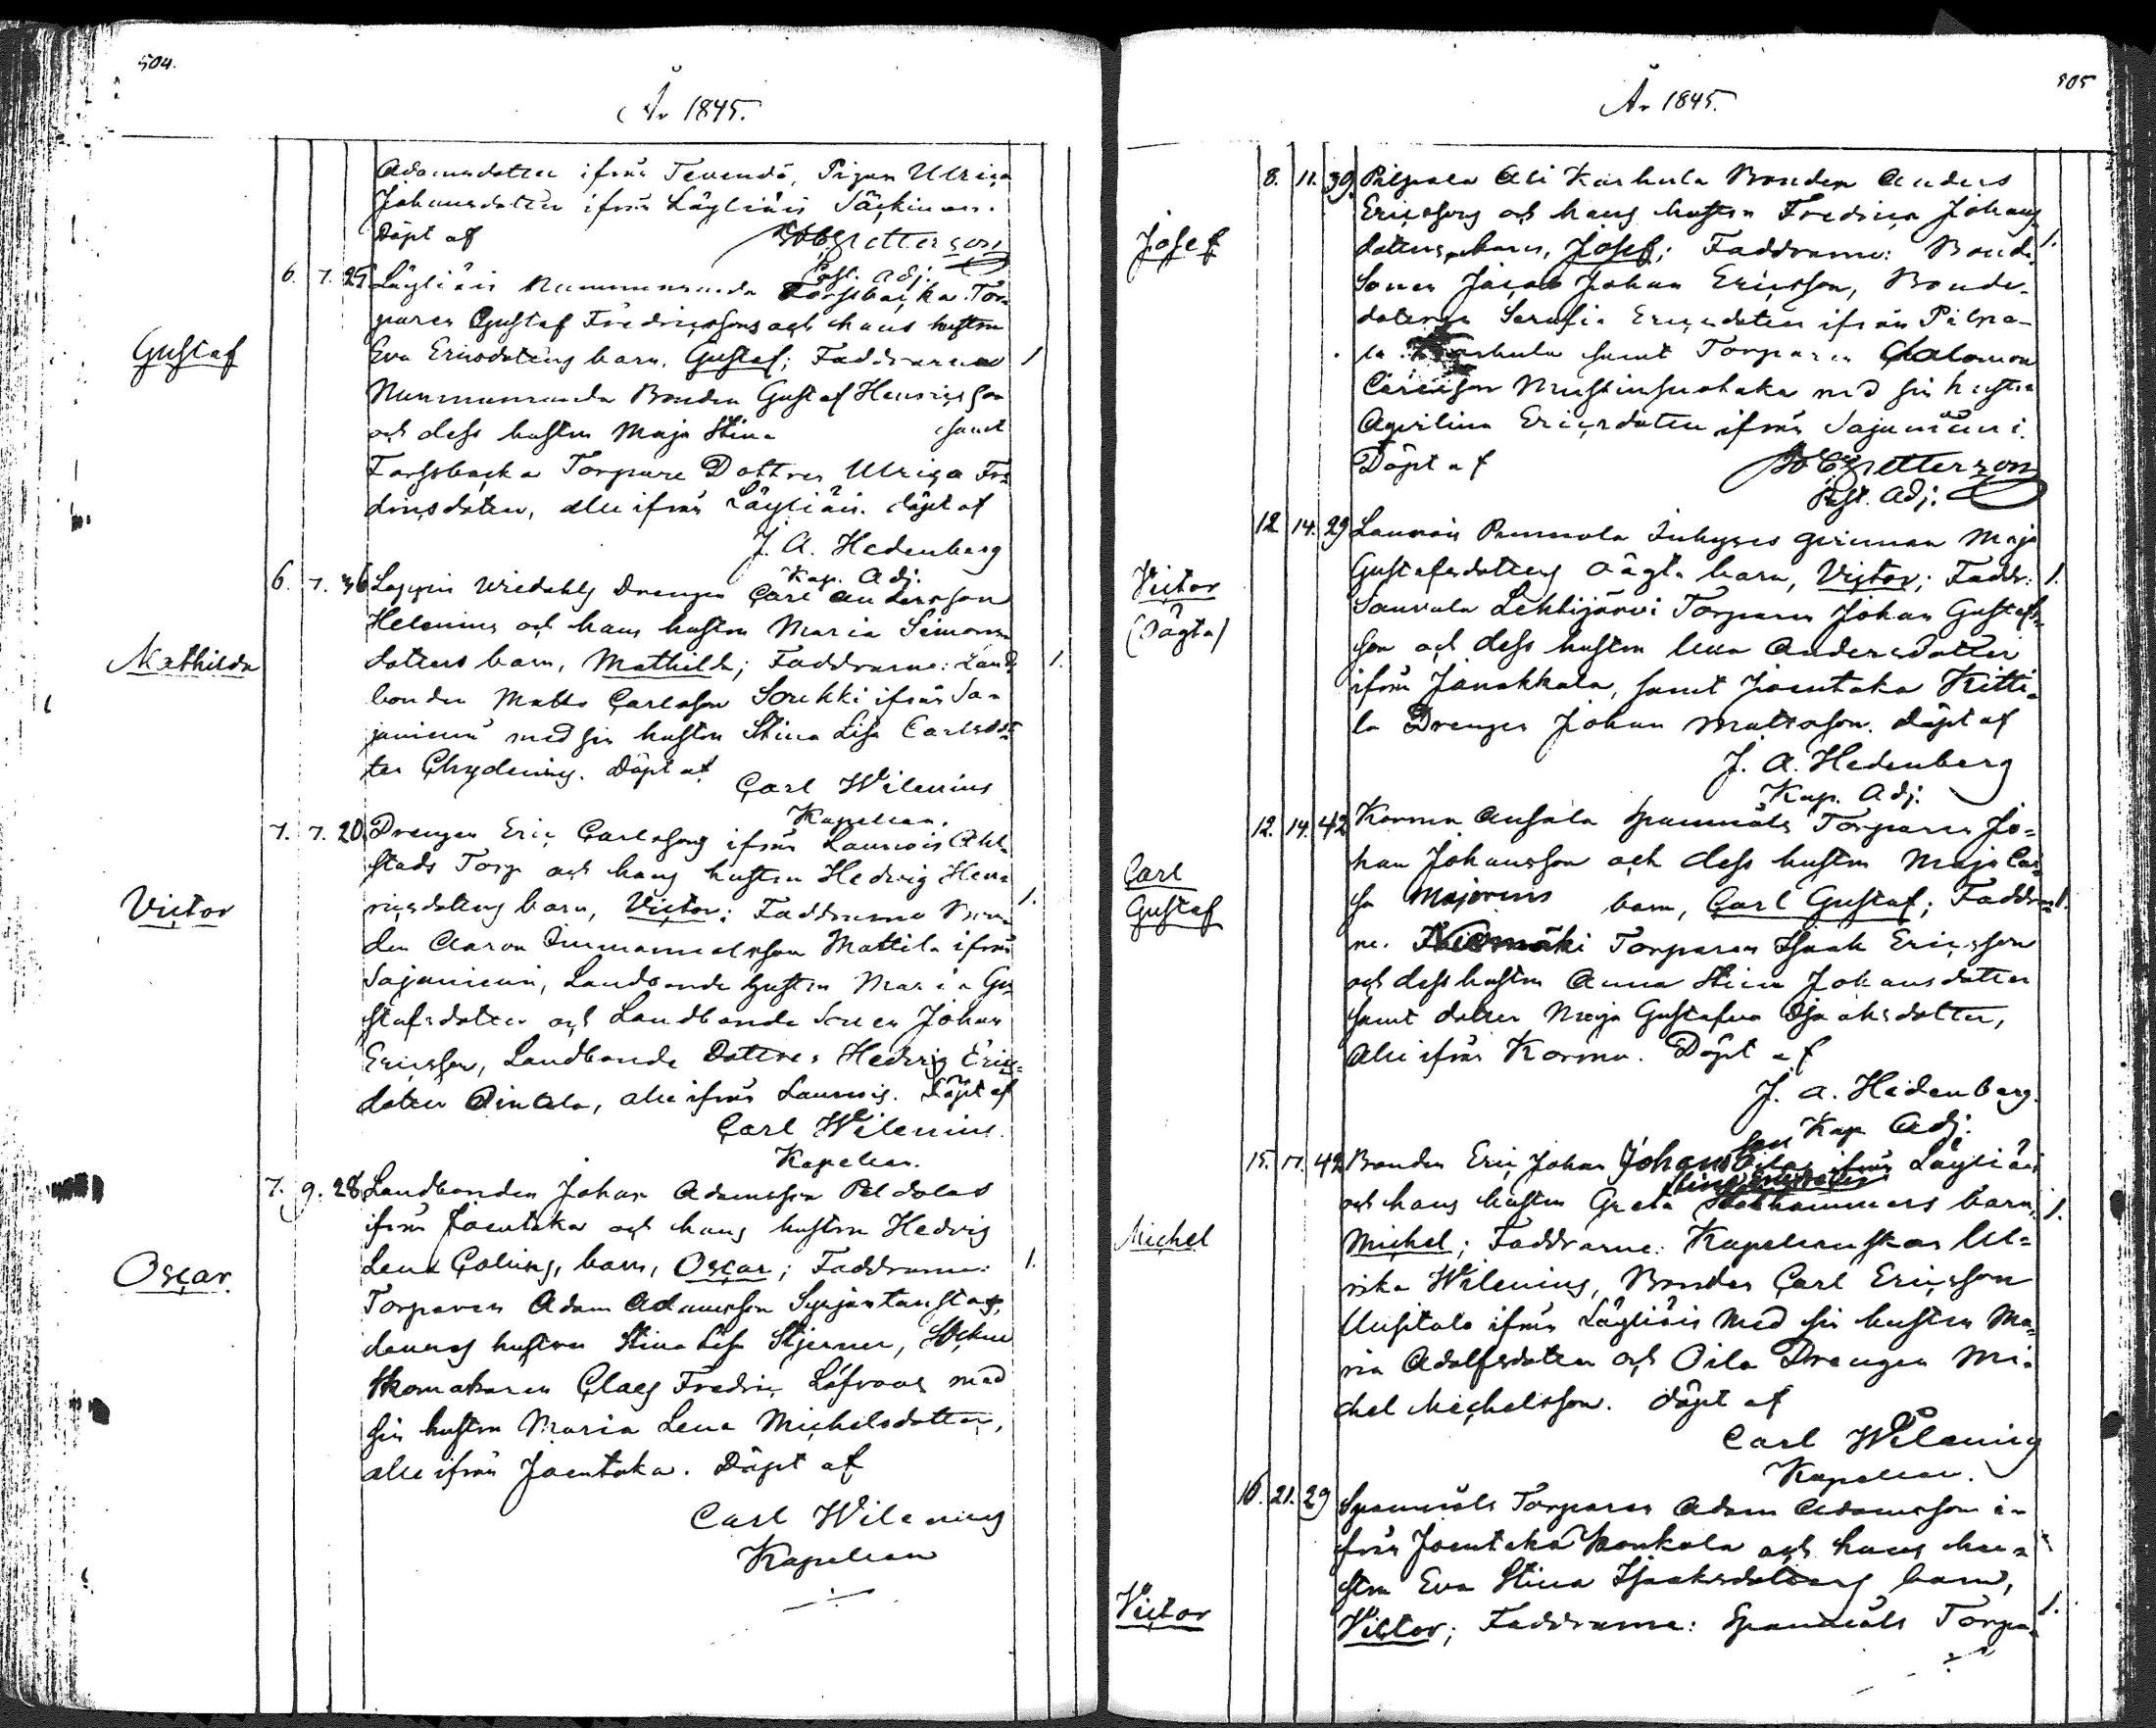 504.
År 1845.
Adamsdotter ifrån Tevendö, Pigan Ulrica
Johansdotter ifrån Läyliäis
Döpt af
Past. Adj.
6. 7. 25 Läyliäis Nummenranda Forssbacka Tor-
paren Gustaf Fredricssons och hans hustru
Gustaf
Eva Ericsdotters barn, Gustaf; Faddrarna 1
Nummenranda Bonden Gustaf Henricsson
och dess hustru Maja Stina samt
Forssbacka Torpare Dottren Ulrica Fre-
dricsdotter, alle ifrån Läyliäis. döpt af
J. A. Hedenberg
Kap. Adj.
6. 7. 36 Loppis Wiedahls Drengen Carl Andersson
Helenius och hans hustru Maria Simons-
Mathilda
dotters barn, Mathilda; Faddrarne: Land- 1.
bonden Matts Carlsson Soukki ifrån Sa-
janiemi med sin hustru Stina Lisa Carlsdot-
ter Chydenius. Döpt af
Carl Wilenius
Kapellan.
7. 7. 20 Drengen Eric Carlssons ifrån Launois Ahl-
stads Torp och hans hustru Hedvig Hen-
Victor
ricsdotters barn, Victor; Faddrarne Bon- 1.
den Aaron Immanuelsson Mattila ifrån
Sajaniemi, Landbonde hustrun Maria Gu-
stafsdotter och Landbonde Sonen Johan
Ericsson, Landbonde Dottren Hedvig Erics-
dotter alle ifrån Launois. Döpt af
Carl Wilenius.
Kapellan.
7. 9. 28 Landbonden Johan Adamsson Peldolas
ifrån Joentaka och hans hustru Hedvig
Oscar
Lena barn, Oscar; Faddrarne: 1.
Torparen Adam Adamsson Syrjäntausta,
dennes hustru Stina Lisa Stjerner, Sockne
Skomakaren Claes Fredric Löfroos med
sin hustru Maria Lena Michelsdotter,
alle ifrån Joentaka. Döpt af
Carl Wilenius
Kapellan
505
År 1845.
8. 11. 39. Pilpala Ali Karhula Bonden Anders
Ericssons och hans hustru Fredrica Johans-
Josef
dotters barn, Josef; Faddrarne: Bonde 1.
Sonen Jacob Johan Ericsson, Bonde-
dottren Serafia Ericsdotter ifrån Pilpa-
la Karhula samt Torparen Salomon
Ericsson Mustinsuotaka med sin hustru
Aqvilina Ericsdotter ifrån Sajaniemi.
Döpt af
Past. Adj.
12. 14. 29 Launois Pannola Inhyses qvinnan Maja
Victor
Gustafsdotters oägta barn, Victor; Faddr: 1.
(Oägta)
Sauvala Lehtijärvi Torparen Johan Gustafs-
son och dess hustru Lena Andersdotter
ifrån Janakkala, samt Joentaka Kitti-
la Drengen Johan Mattsson. döpt af
J. A. Hedenberg
Kap. Adj.
12. 14. 42 Kormu Ansala Spannmåls Torparen Jo-
han Johansson och dess hustru Maja Cai-
Carl
sa Majorins barn, Carl Gustaf; Faddrar- 1.
Gustaf
ne. Niemäki Torparen Isaak Ericsson
och dess hustru Anna Stina Johansdotter
samt dotter Maja Gustafva Isaaksdotter,
Alle ifrån Kormu. Döpt af
J. A. Hedenberg.
Kap. Adj.
15. 17. 42 Bonden Eric Johan Johansson Oilas ifrån Läyliäis
och hans hustru Greta barn, 1.
Michel
Michel; Faddrarne: Kapellanskan Ul-
rika Wilenius, Bonden Carl Ericsson
Uusitalo ifrån Läyliäis med sin hustru Ma-
ria Adolfsdotter och Oila Drengen Mi-
chel Michelsson. döpt af
Carl Wilenius
Kapellan.
16. 21. 29 Spannmåls Torparen Adam Adamsson i-
från Joentaka Koukola och hans hu-
stru Eva Stina Isaaksdotters barn,
Victor
Victor; Faddrarne: Spannmåls Torpa- 1.